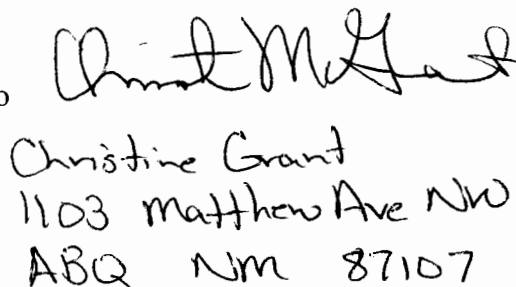 Christine Grant
1103 Matthew Ave NW
ABQ NM 87107